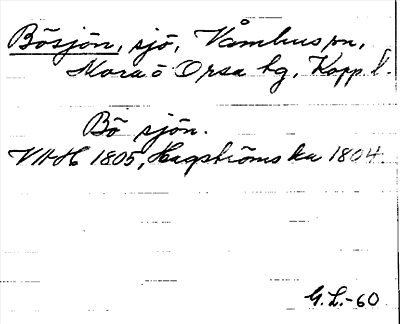 Bösjön, sjö, Våmhus sn,
Mora o Orsa tg, Kopp. l.
Bö sjön.
VAH 1805, Hagströms ka 1804.
G. L. -60